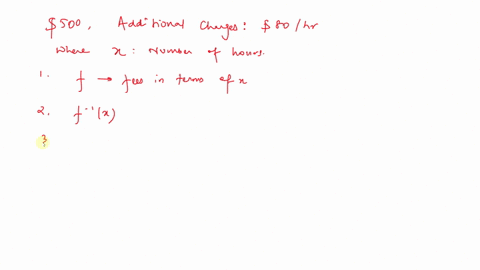 $500, Additional Charges: $80/hr
where x: Number of hours.
1. f → fees in terms of x
2. f⁻¹(x)
3